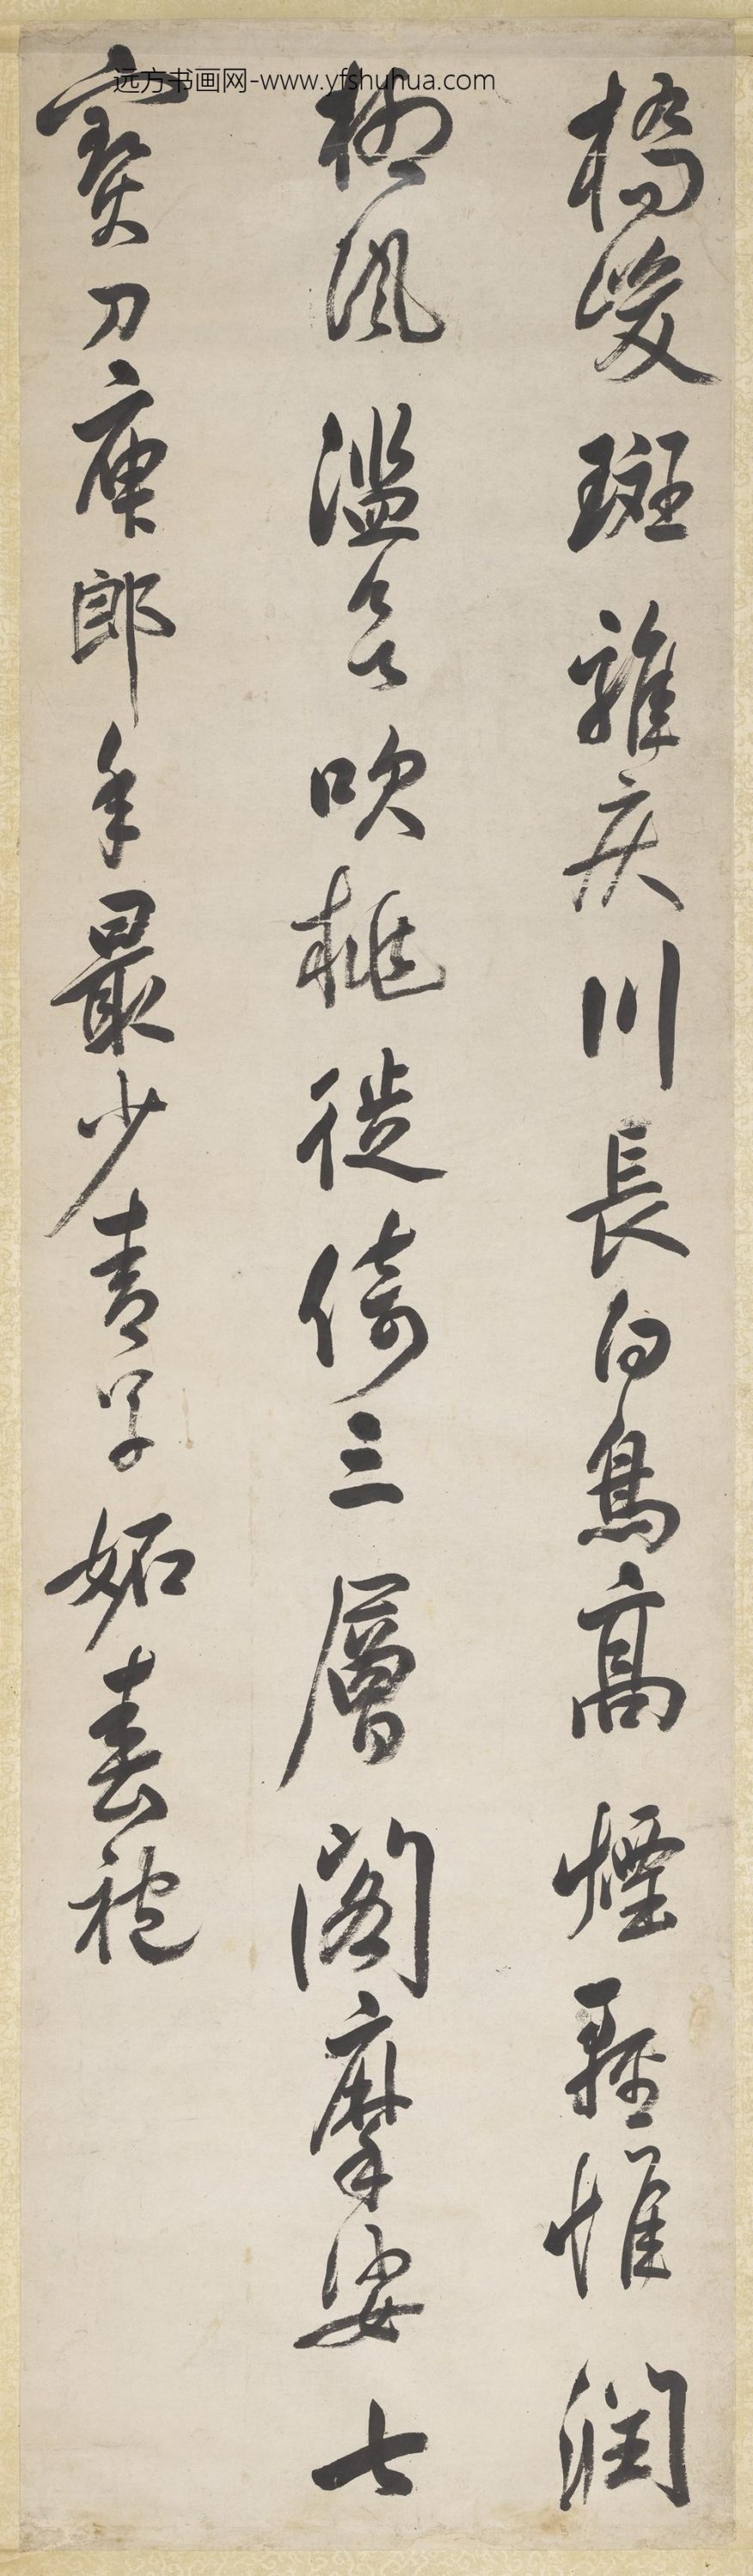 远方书画网-www.yfshuhua.com
橋峻斑騅疾川長白鳥高煙輕惟潤
柳風濫欲吹桃徙倚三層閣摩娑七
寶刀庾郎年最少青草妬春袍